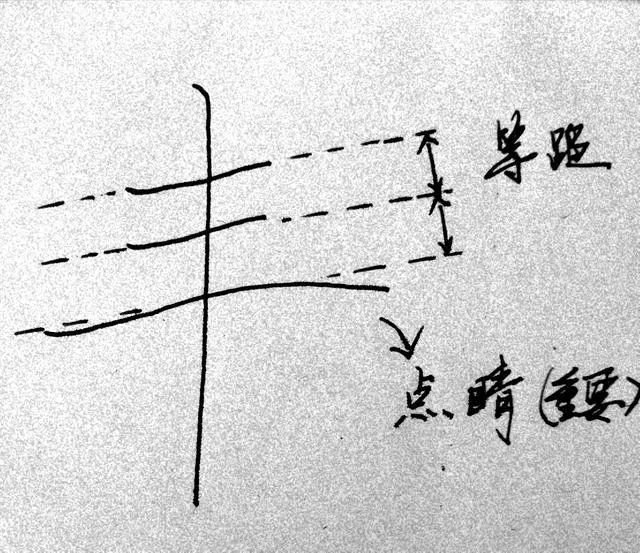 丰
等距
点睛(重要)